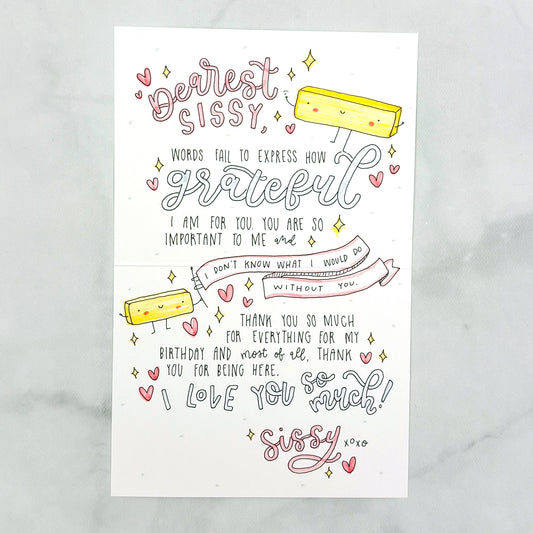 Dearest
SISSY,
WORDS FAIL TO EXPRESS HOW
grateful
I AM FOR YOU. YOU ARE SO
IMPORTANT TO ME and
I DON'T KNOW WHAT I WOULD DO
WITHOUT YOU.
THANK YOU SO MUCH
FOR EVERYTHING FOR MY
BIRTHDAY AND most of all, THANK
YOU FOR BEING HERE.
I LOVE YOU so much!
sissy xoxo